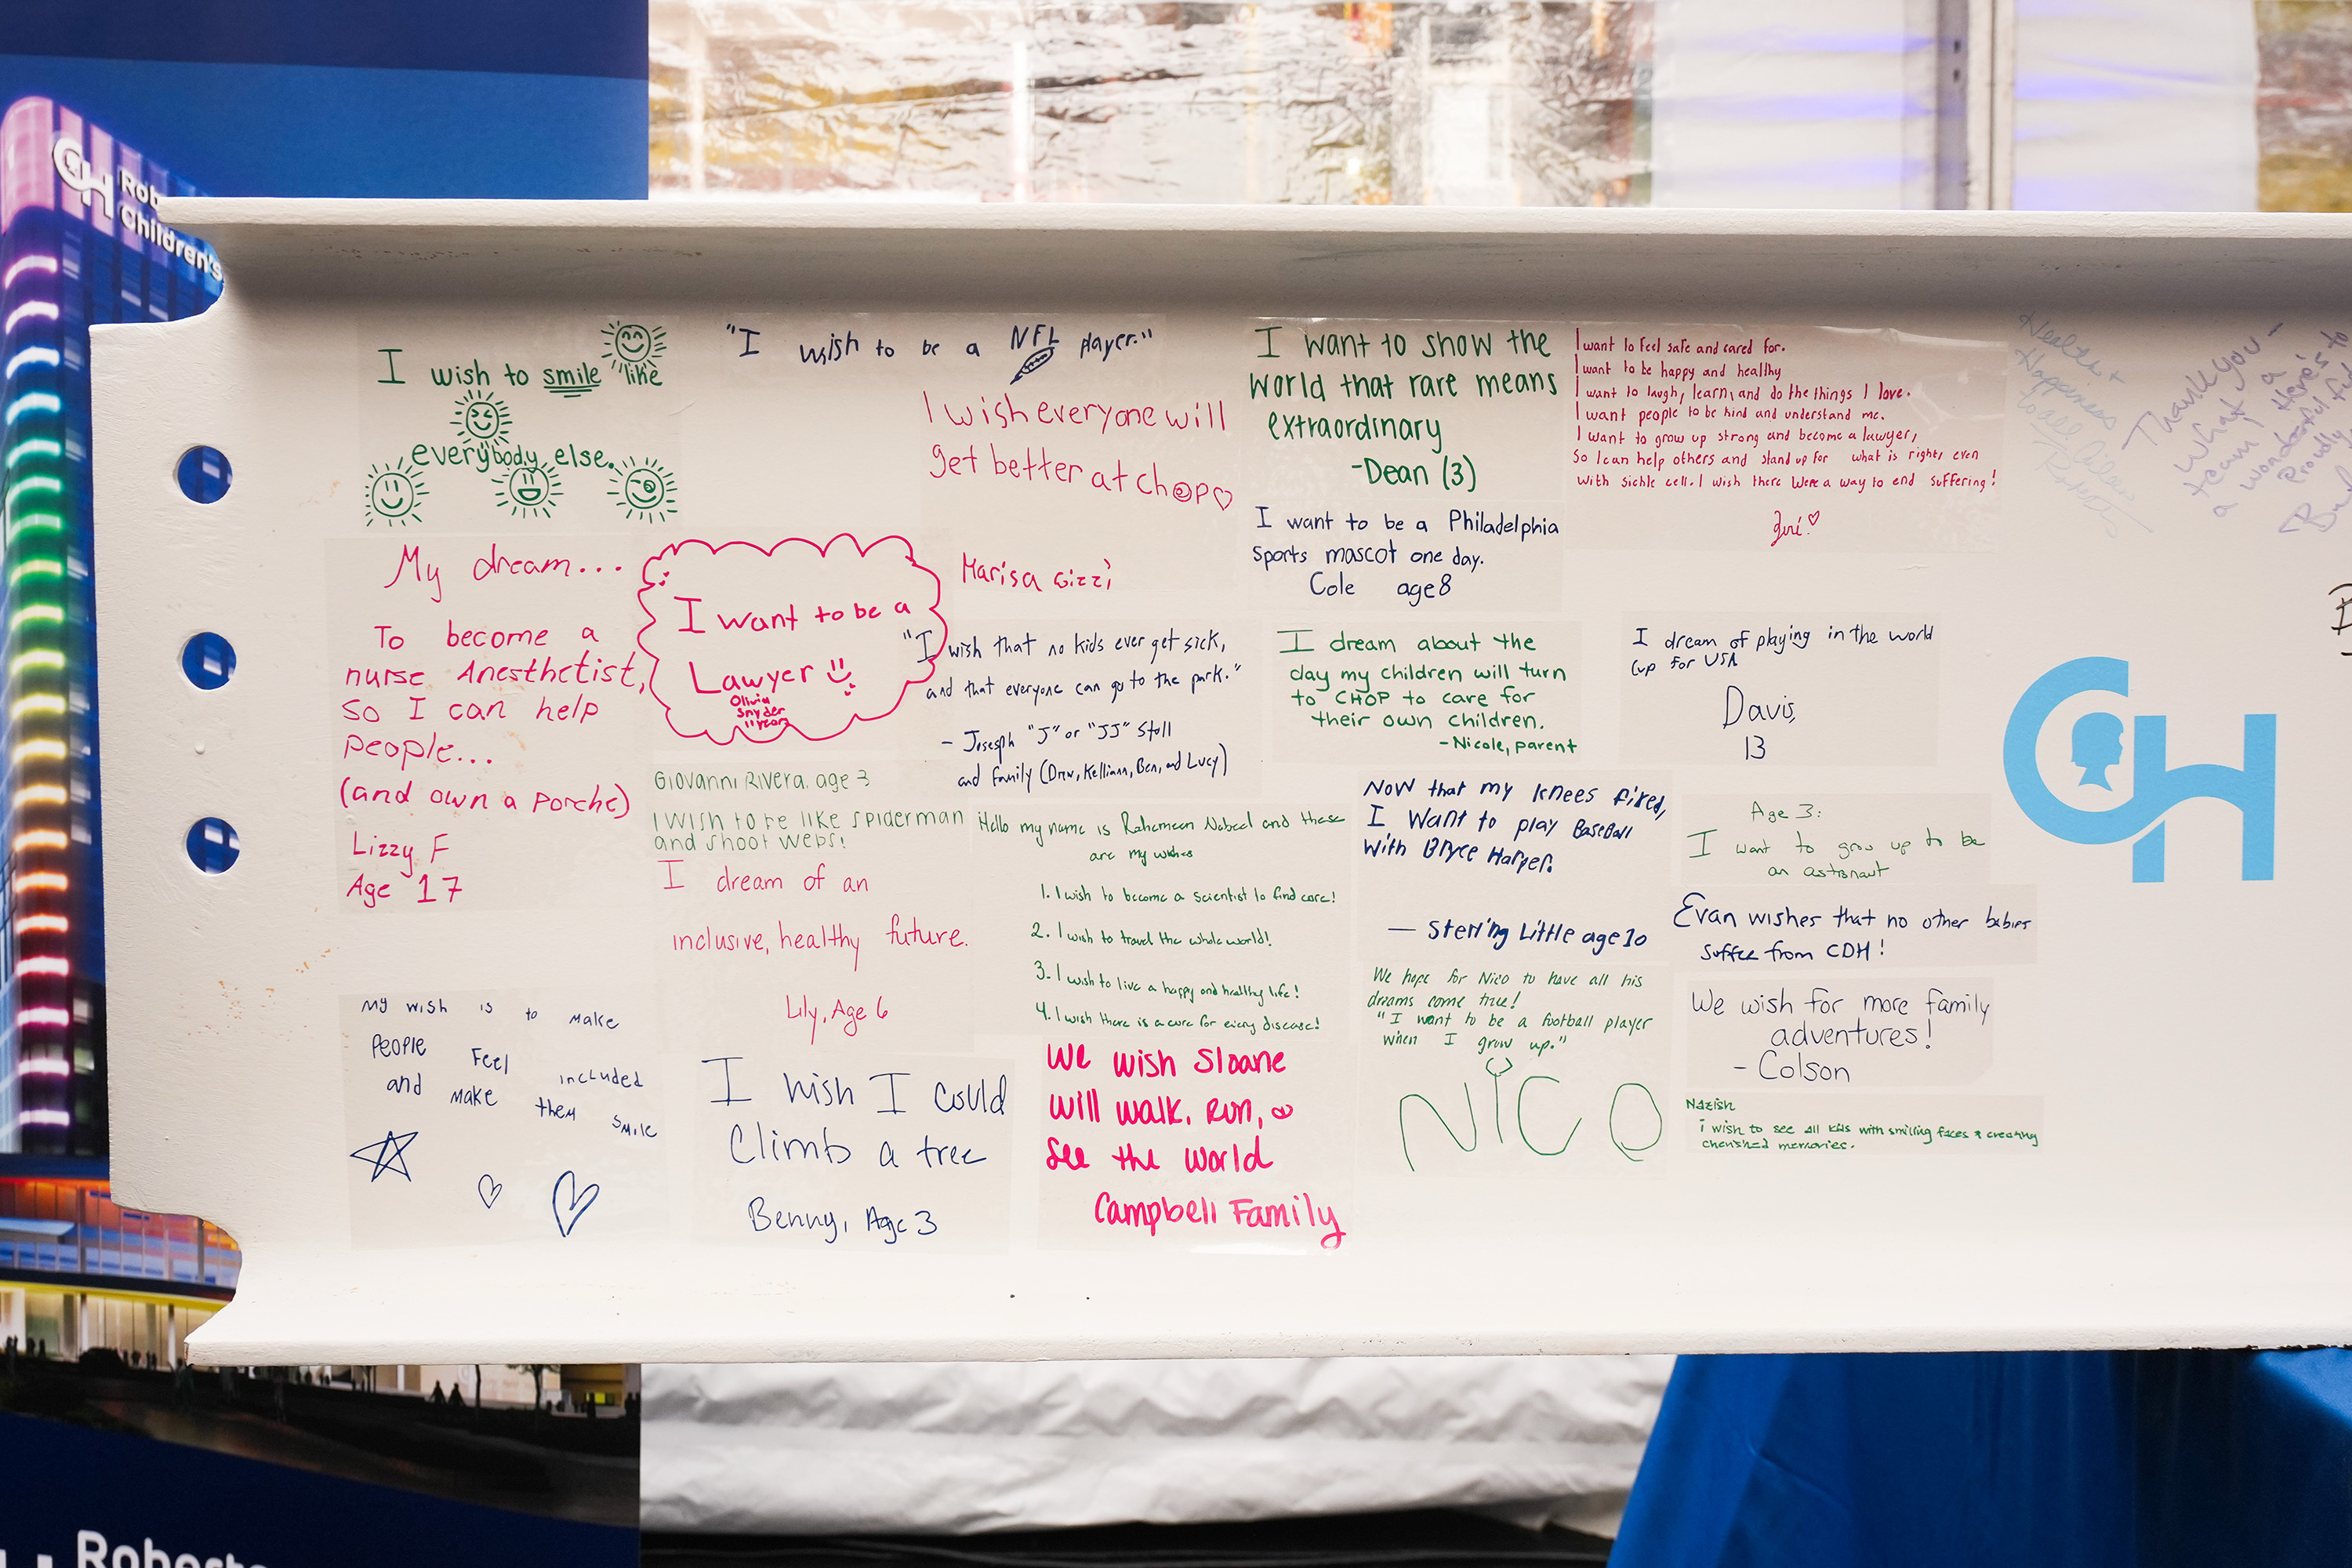 CH
Children's
I wish to smile like
everybody else.
"I wish to be a NFL player."
I wish everyone will
get better at chop
Marisa Gizzi
I want to show the
world that rare means
extraordinary
-Dean (3)
I want to feel safe and cared for.
I want to be happy and healthy
I want to laugh, learn, and do the things I love.
I want people to be kind and understand me.
I want to grow up strong and become a lawyer,
So I can help others and stand up for what is right, even
with sickle cell. I wish there were a way to end suffering!
Health +
Happiness
to all
Thank you -
What a
team! Here's to
a wonderful
Proudly
I want to be a Philadelphia
Sports mascot one day.
Cole age 8
My dream...
To become a
nurse Anesthetist,
so I can help
people...
(and own a porche)
Lizzy F
Age 17
I want to be a
Lawyer
Olivia
Snyder
11 years
"I wish that no kids ever get sick,
and that everyone can go to the park."
- Josesph "J" or "JJ" Stoll
and family (Drew, Kelliann, Ben, and Lucy)
I dream about the
day my children will turn
to CHOP to care for
their own children.
-Nicole, parent
I dream of playing in the world
cup for USA
Davis,
13
Giovanni Rivera, age 3
I wish to be like spiderman
and shoot webs!
I dream of an
inclusive, healthy future.
Lily, Age 6
Hello my name is Rahemeen Nabeel and these
are my wishes
1. I wish to become a scientist to find cure!
2. I wish to travel the whole world!
3. I wish to live a happy and healthy life!
4. I wish there is a cure for every disease!
Now that my knees fixed,
I want to play Baseball
with Bryce Harper.
— Sterling Little age 10
Age 3:
I want to grow up to be
an astronaut
Evan wishes that no other babies
suffer from CDH!
We hope for Nico to have all his
dreams come true!
"I want to be a football player
when I grow up."
NICO
We wish for more family
adventures!
- Colson
Nazish
i wish to see all kids with smiling faces & creating
cherished memories.
My wish is to make
People Feel included
and make them smile
I wish I could
Climb a tree
Benny, Age 3
We wish Sloane
will walk, run, &
See the world
Campbell Family
CH